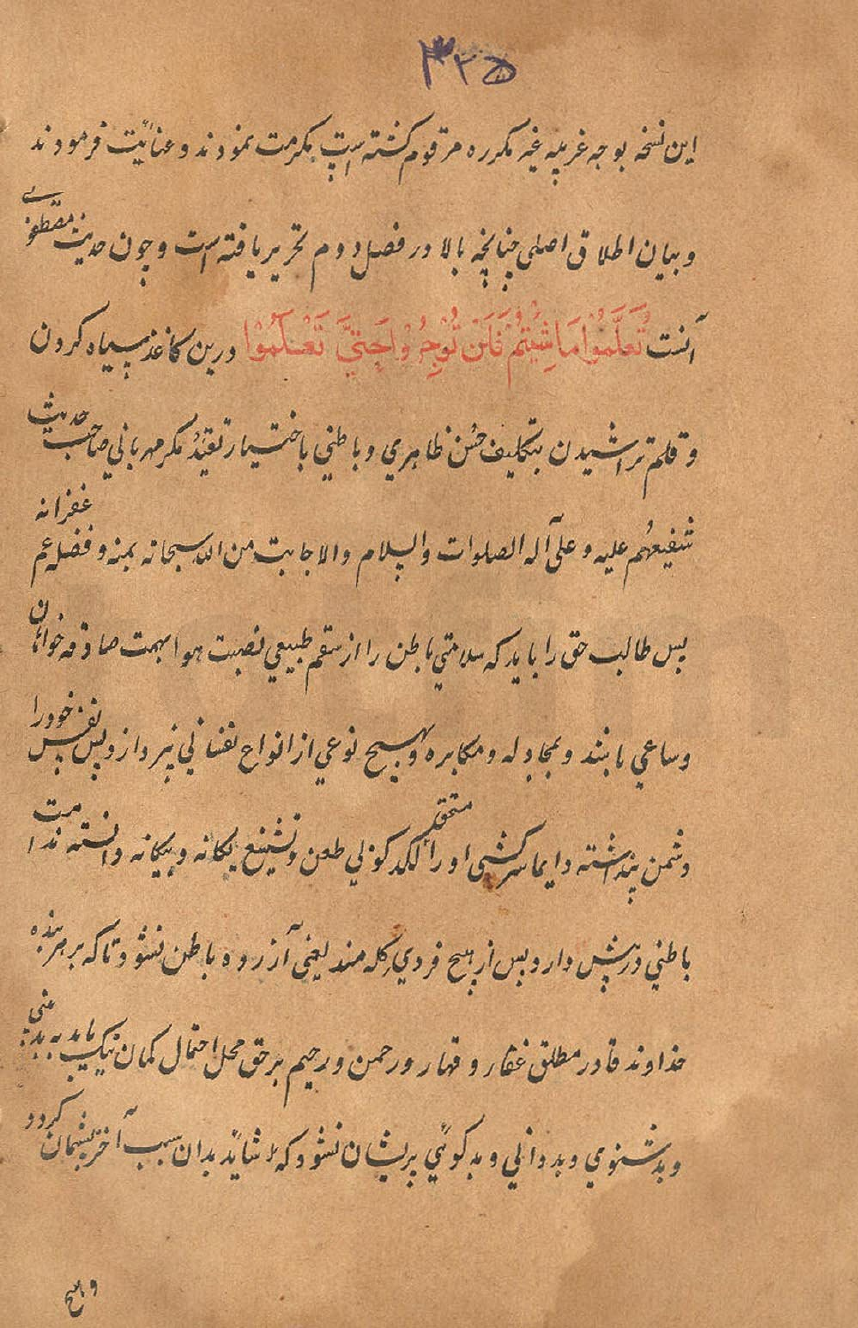 ۳۲۵
این نسخه بوجه غریبه غیر مکرره مرقوم کشته است مکرمت نمودند و عنایت فرمودند
و بیان اطلاق اصلی چنانچه بالا در فصل دوم تحریر یافته است و چون حدیث مصطفوی
آنست تَعَلَّمُوْا مَا شِئْتُمْ فَلَنْ تُوْجَرُوْا حَتّیٰ تَعْمَلُوْا درین کاغذ سیاه کردن
و قلم تراشیدن بتکلیف حسن ظاهری و باطنی باختیار تقید مکر مهربانی صاحب حدیث
شفیعهم علیه و علی آله الصلوات والسلام والاجابت من الله سبحانه بمنه و فضله عم غفرانه
پس طالب حق را باید که سلامتی باطن را از سقم طبیعی هوا بهمت صادقه خواهان
و ساعی باشد و بمجادله و مکابره و بهیچ نوعی از انواع نفسانی نپردازد پس نفس خود را
دشمن پنداشته دایما سرکشی او را لکدکوب طعن و تشنیع یکانه و بیکانه دانسته ندامت
باطنی در پیش دارد پس از هیچ فردی کله مند یعنی آزرده باطن نشود تا که بر هر بنده
خداوند قادر مطلق غفار و قهار و رحمن و رحیم بر حق محل احتمال کمان نیک باید به بدبینی
و بدشنوی و بددانی و بدکوئی پریشان نشود که لا شاید بدان سبب آخر پشیمان کردد
و هیچ